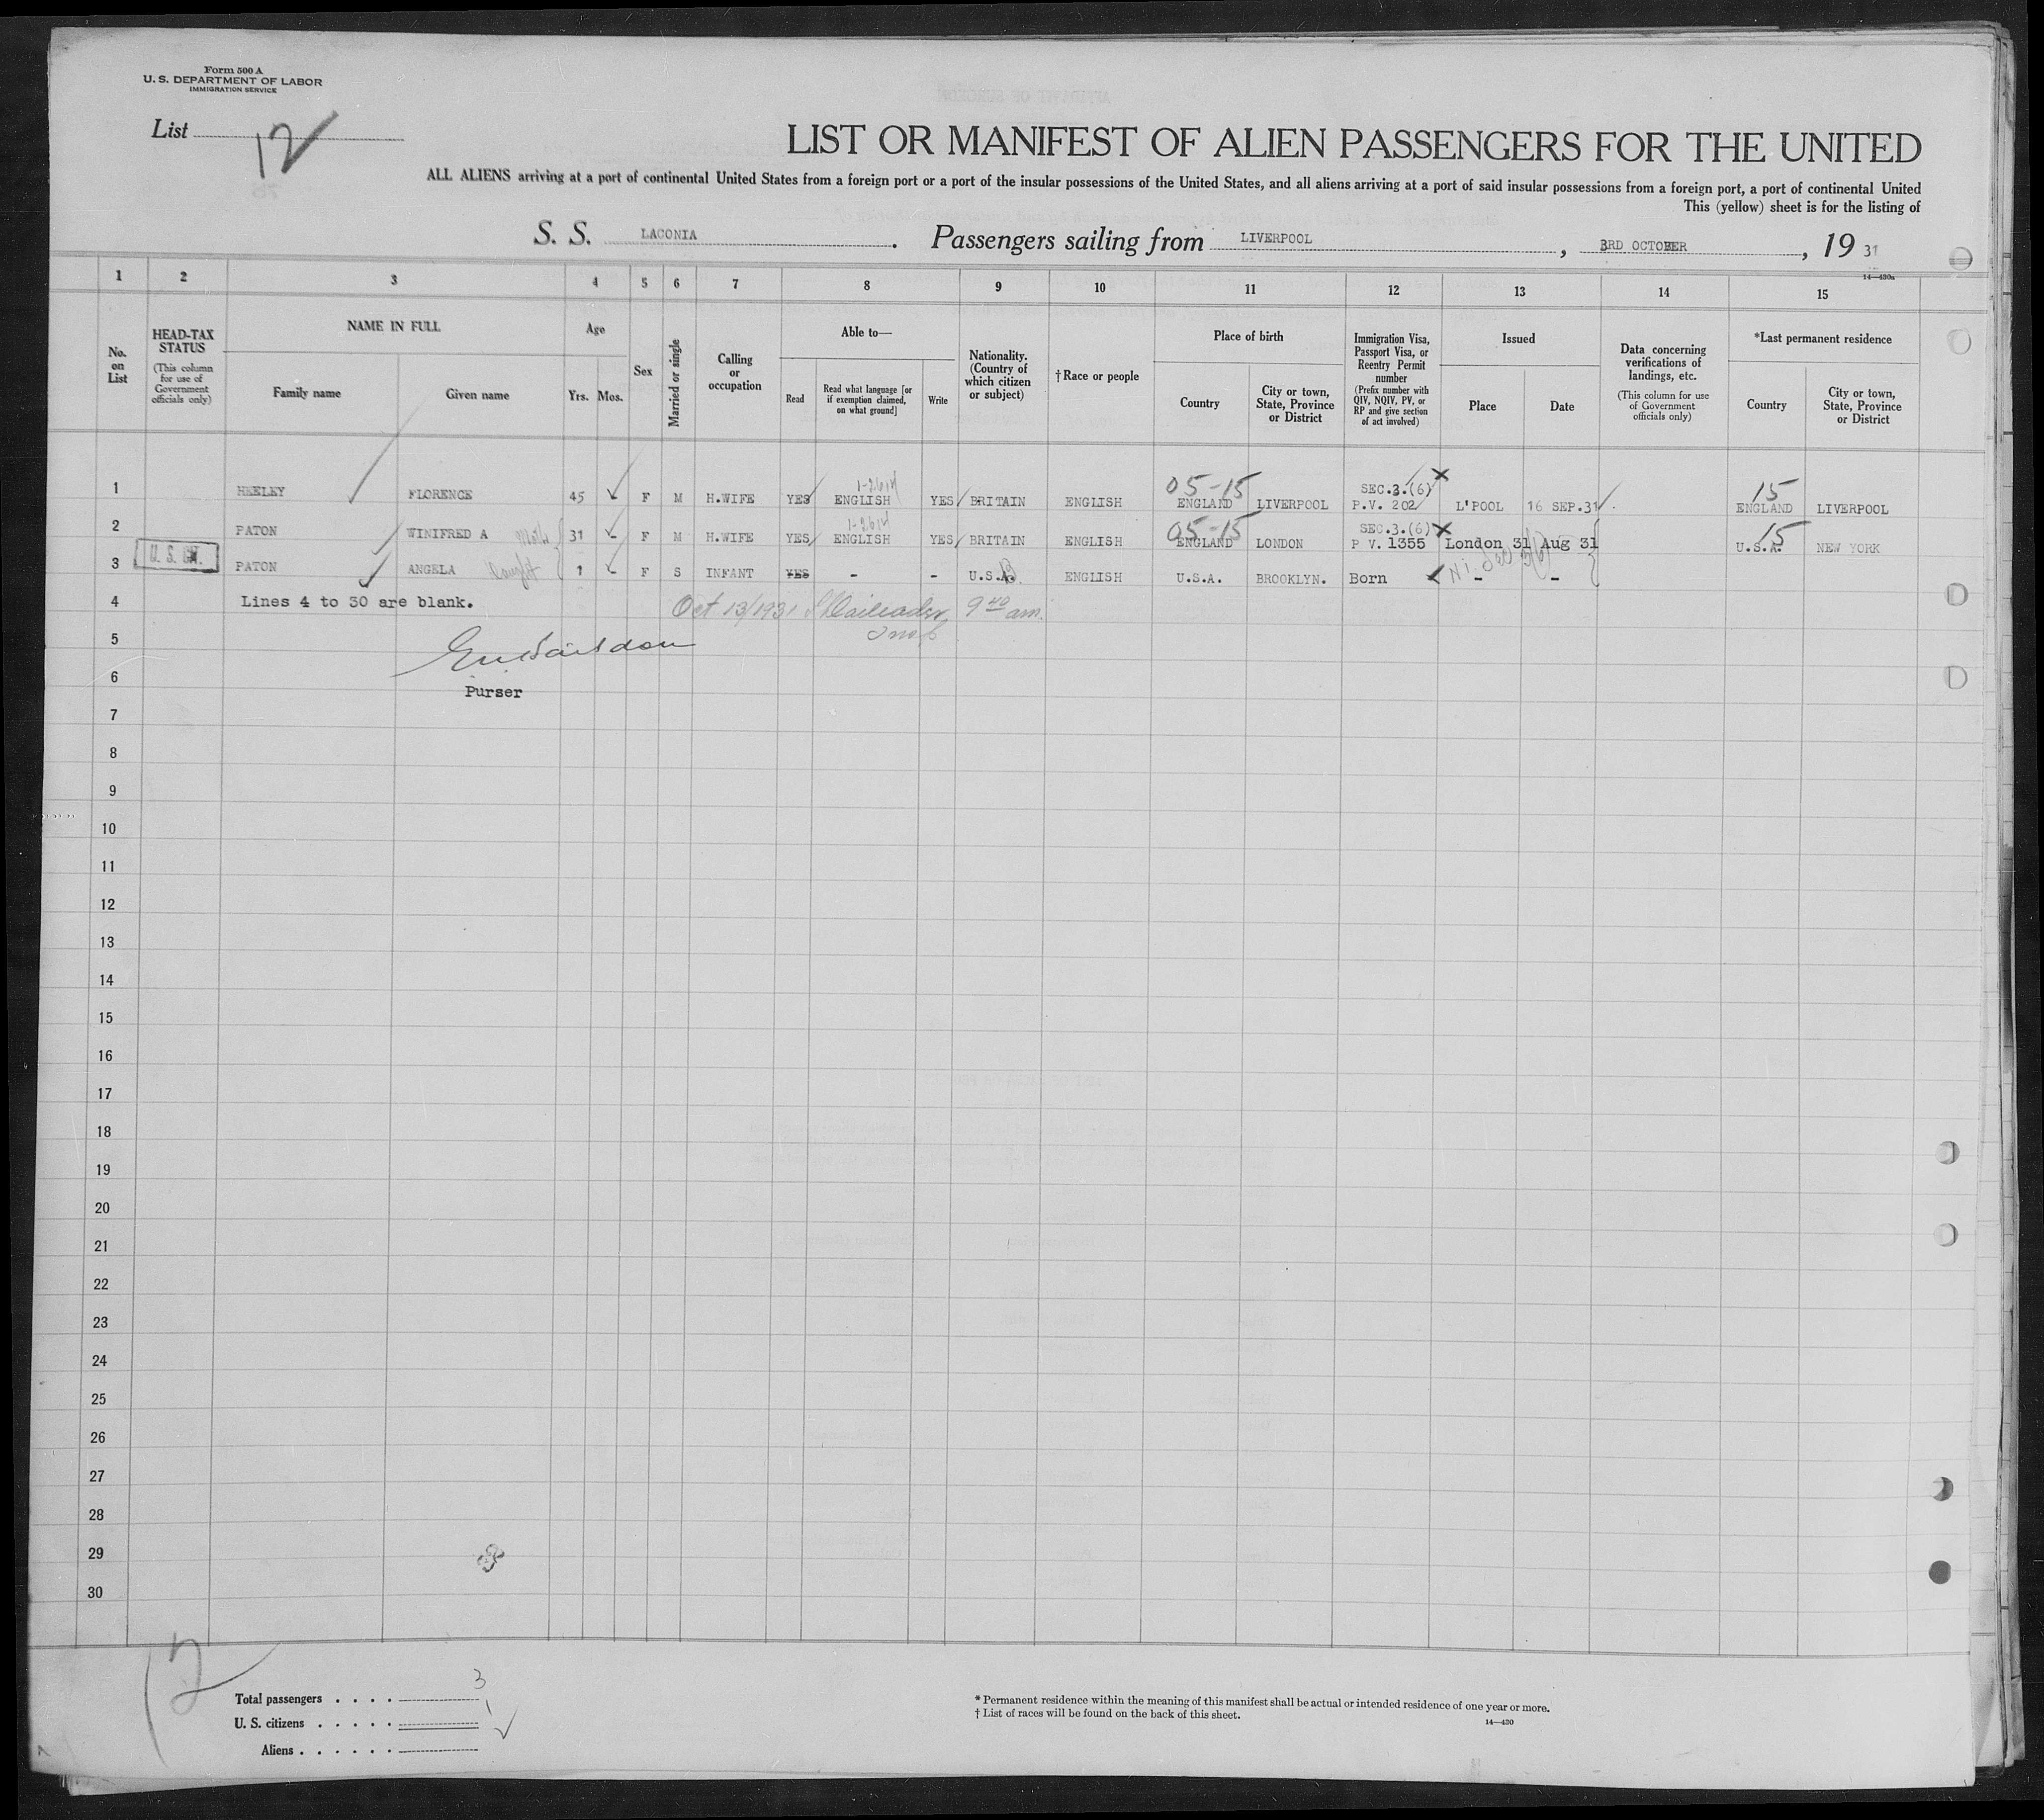 Form 500 A
U. S. DEPARTMENT OF LABOR
IMMIGRATION SERVICE
List 12
LIST OR MANIFEST OF ALIEN PASSENGERS FOR THE UNITED
ALL ALIENS arriving at a port of continental United States from a foreign port or a port of the insular possessions of the United States, and all aliens arriving at a port of said insular possessions from a foreign port, a port of continental United
This (yellow) sheet is for the listing of
S. S. LACONIA. Passengers sailing from LIVERPOOL, 3RD OCTOBER, 19 31
14—430a
1 2 3 4 5 6 7 8 9 10 11 12 13 14 15
No. on List
HEAD-TAX STATUS
(This column for use of Government officials only)
NAME IN FULL
Family name
Given name
Age
Yrs. Mos.
Sex
Married or single
Calling or occupation
Able to—
Read
Read what language [or if exemption claimed, on what ground]
Write
Nationality. (Country of which citizen or subject)
†Race or people
Place of birth
Country
City or town, State, Province or District
Immigration Visa, Passport Visa, or Reentry Permit number
(Prefix number with QIV, NQIV, PV, or RP and give section of act involved)
Issued
Place
Date
Data concerning verifications of landings, etc.
(This column for use of Government officials only)
*Last permanent residence
Country
City or town, State, Province or District
05-15 SEC.3.(6) 15
1 HEELEY FLORENCE 45 F M H.WIFE YES ENGLISH YES BRITAIN ENGLISH ENGLAND LIVERPOOL P.V. 202 L'POOL 16 SEP.31 ENGLAND LIVERPOOL
05-15 SEC.3.(6) 15
2 PATON WINIFRED A 31 F M H.WIFE YES ENGLISH YES BRITAIN ENGLISH ENGLAND LONDON P V. 1355 London 31 Aug 31 U.S.A. NEW YORK
3 U. S. PATON ANGELA 1 - F S INFANT YES - - U.S.A. ENGLISH U.S.A. BROOKLYN. Born - -
4 Lines 4 to 30 are blank. Oct 13/1931 9 40 am.
5
6 Purser
7
8
9
10
11
12
13
14
15
16
17
18
19
20
21
22
23
24
25
26
27
28
29
30
12
Total passengers . . . . 3
U. S. citizens . . . . . 1
Aliens . . . . . .
* Permanent residence within the meaning of this manifest shall be actual or intended residence of one year or more.
† List of races will be found on the back of this sheet.
14—430